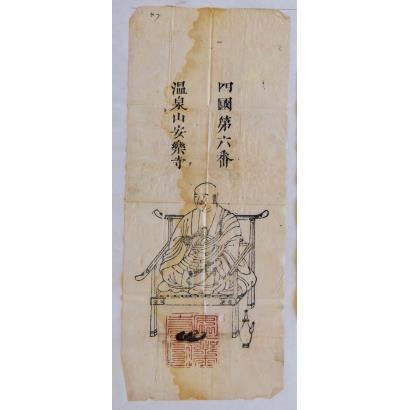 四國第六番
温泉山安樂寺